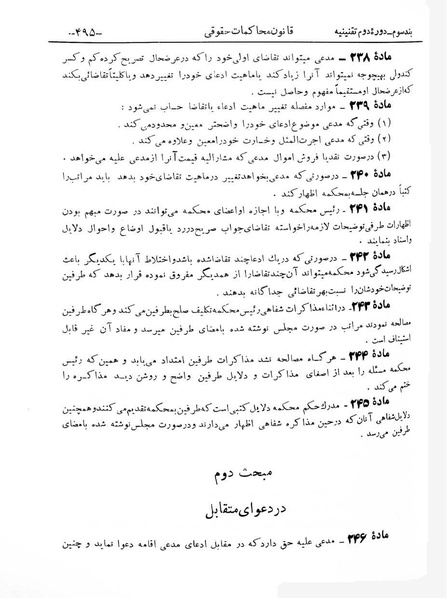 بندسوم_دورهٔ دوم تقنینیه قانون محاکمات حقوقی _۴۹۵_
مادهٔ ۲۳۸ _ مدعی میتواند تقاضای اولی خود را که در عرضحال تصریح کرده کم و کسر
کند ولی بهیچوجه نمیتواند آنرا زیاد کند یا ماهیت ادعای خودرا تغییر دهد و یا کلیتاً تقاضائی بکند
که از عرضحال او مستقیماً مفهوم و حاصل نیست .
مادهٔ ۲۳۹ _ موارد مفصله تغییر ماهیت ادعاء یا تقاضا حساب نمی‌شود :
(۱) وقتی که مدعی موضوع ادعای خودرا واضحتر معین و محدود می‌کند .
(۲) وقتی که مدعی اجرت‌المثل و خسارت خودرا معین و علاوه می کند .
(۳) درصورت نقد یا فروش اموال مدعی که مشارالیه قیمت آنرا از مدعی علیه می‌خواهد .
مادهٔ ۲۴۰ _ درصورتی که مدعی بخواهد تغییر در ماهیت تقاضای خود بدهد باید مراتب را
کتباً در همان جلسه بمحکمه اظهار کند .
مادهٔ ۲۴۱ _ رئیس محکمه و با اجازه او اعضای محکمه می‌توانند در صورت مبهم بودن
اظهارات طرفی توضیحات لازمه را خواسته تقاضای جواب صریح در رد یا قبول اوضاع و احوال دلایل
و اسناد بنمایند .
مادهٔ ۲۴۲ _ درصورتی که در یک ادعا چند تقاضا شده باشد و اختلاط آنها با یکدیگر باعث
اشکال رسیدگی شود محکمه میتواند آن چند تقاضا را از همدیگر مفروق نموده قرار بدهد که طرفین
توضیحات خودشان را نسبت بهر تقاضائی جداگانه بدهند .
مادهٔ ۲۴۳ _ در اثناء مذاکرات شفاهی رئیس محکمه تکلیف صلح بطرفین می کند و هرگاه طرفین
مصالحه نمودند مراتب در صورت مجلس نوشته شده بامضای طرفین میرسد و مفاد آن غیر قابل
استیناف است .
مادهٔ ۲۴۴ _ هرگاه مصالحه نشد مذاکرات طرفین امتداد می‌یابد و همین که رئیس
محکمه مسئله را بعد از اصغای مذاکرات و دلایل طرفین واضح و روشن دید مذاکره را
ختم می‌کند .
مادهٔ ۲۴۵ _ مدرک حکم محکمه دلایل کتبی است که طرفین بمحکمه تقدیم می کنند و همچنین
دلایل شفاهی آنان که در حین مذاکره شفاهی اظهار می‌دارند و درصورت مجلس نوشته شده بامضای
طرفین می‌رسد .
مبحث دوم
در دعوای متقابل
مادهٔ ۲۴۶ _ مدعی علیه حق دارد که در مقابل ادعای مدعی اقامه دعوا نماید و چنین